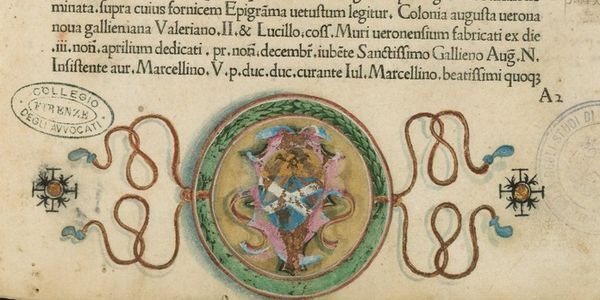 minata. supra cuius fornicem Epigrãma uetustum legitur. Colonia augusta uerona
noua gallieniana Valeriano. II. & Lucillo. coss. Muri ueronensium fabricati ex die
.iii. non. aprilium dedicati. pr. non. decembr. iubẽte Sanctissimo Gallieno Aug. N.
Insistente aur. Marcellino. V. p. duc. duc. curante Iul. Marcellino. beatissimi quoq
A2
COLLEGIO
FIRENZE
DEGLI AVVOCATI
STUDI DI